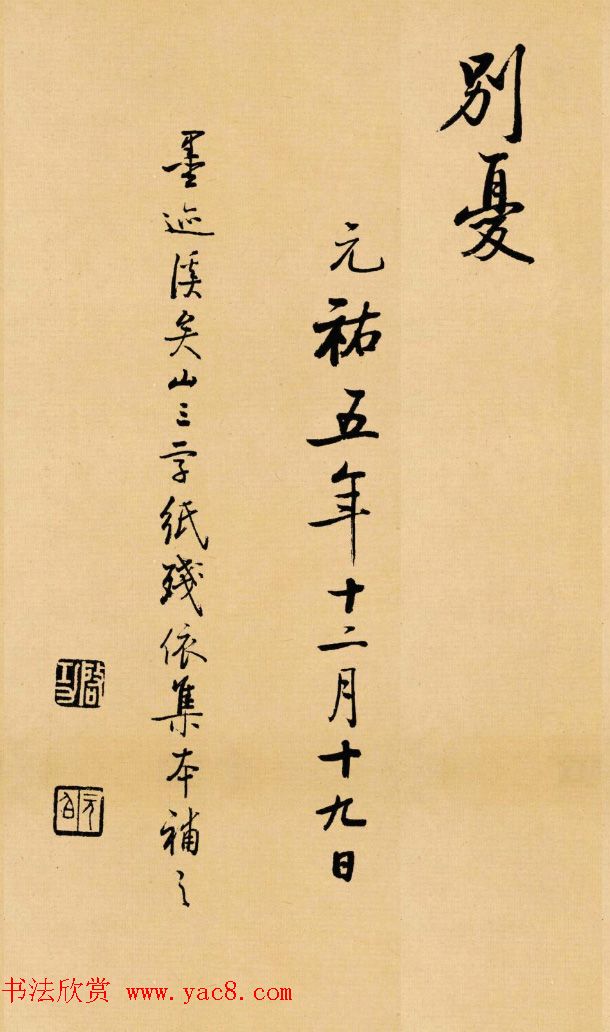 別憂
元祐五年十二月十九日
墨迹溪矣山三字紙殘依集本補之
啓功
元白
书法欣赏 www.yac8.com